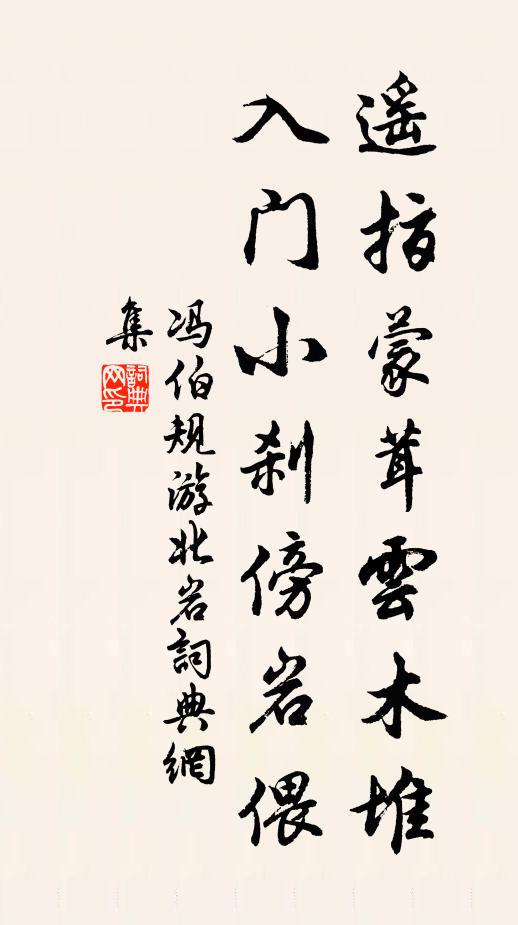 遥指蒙茸雲木堆
入门小刹傍岩偎
冯伯规游北岩詞典網
集
詞典网印